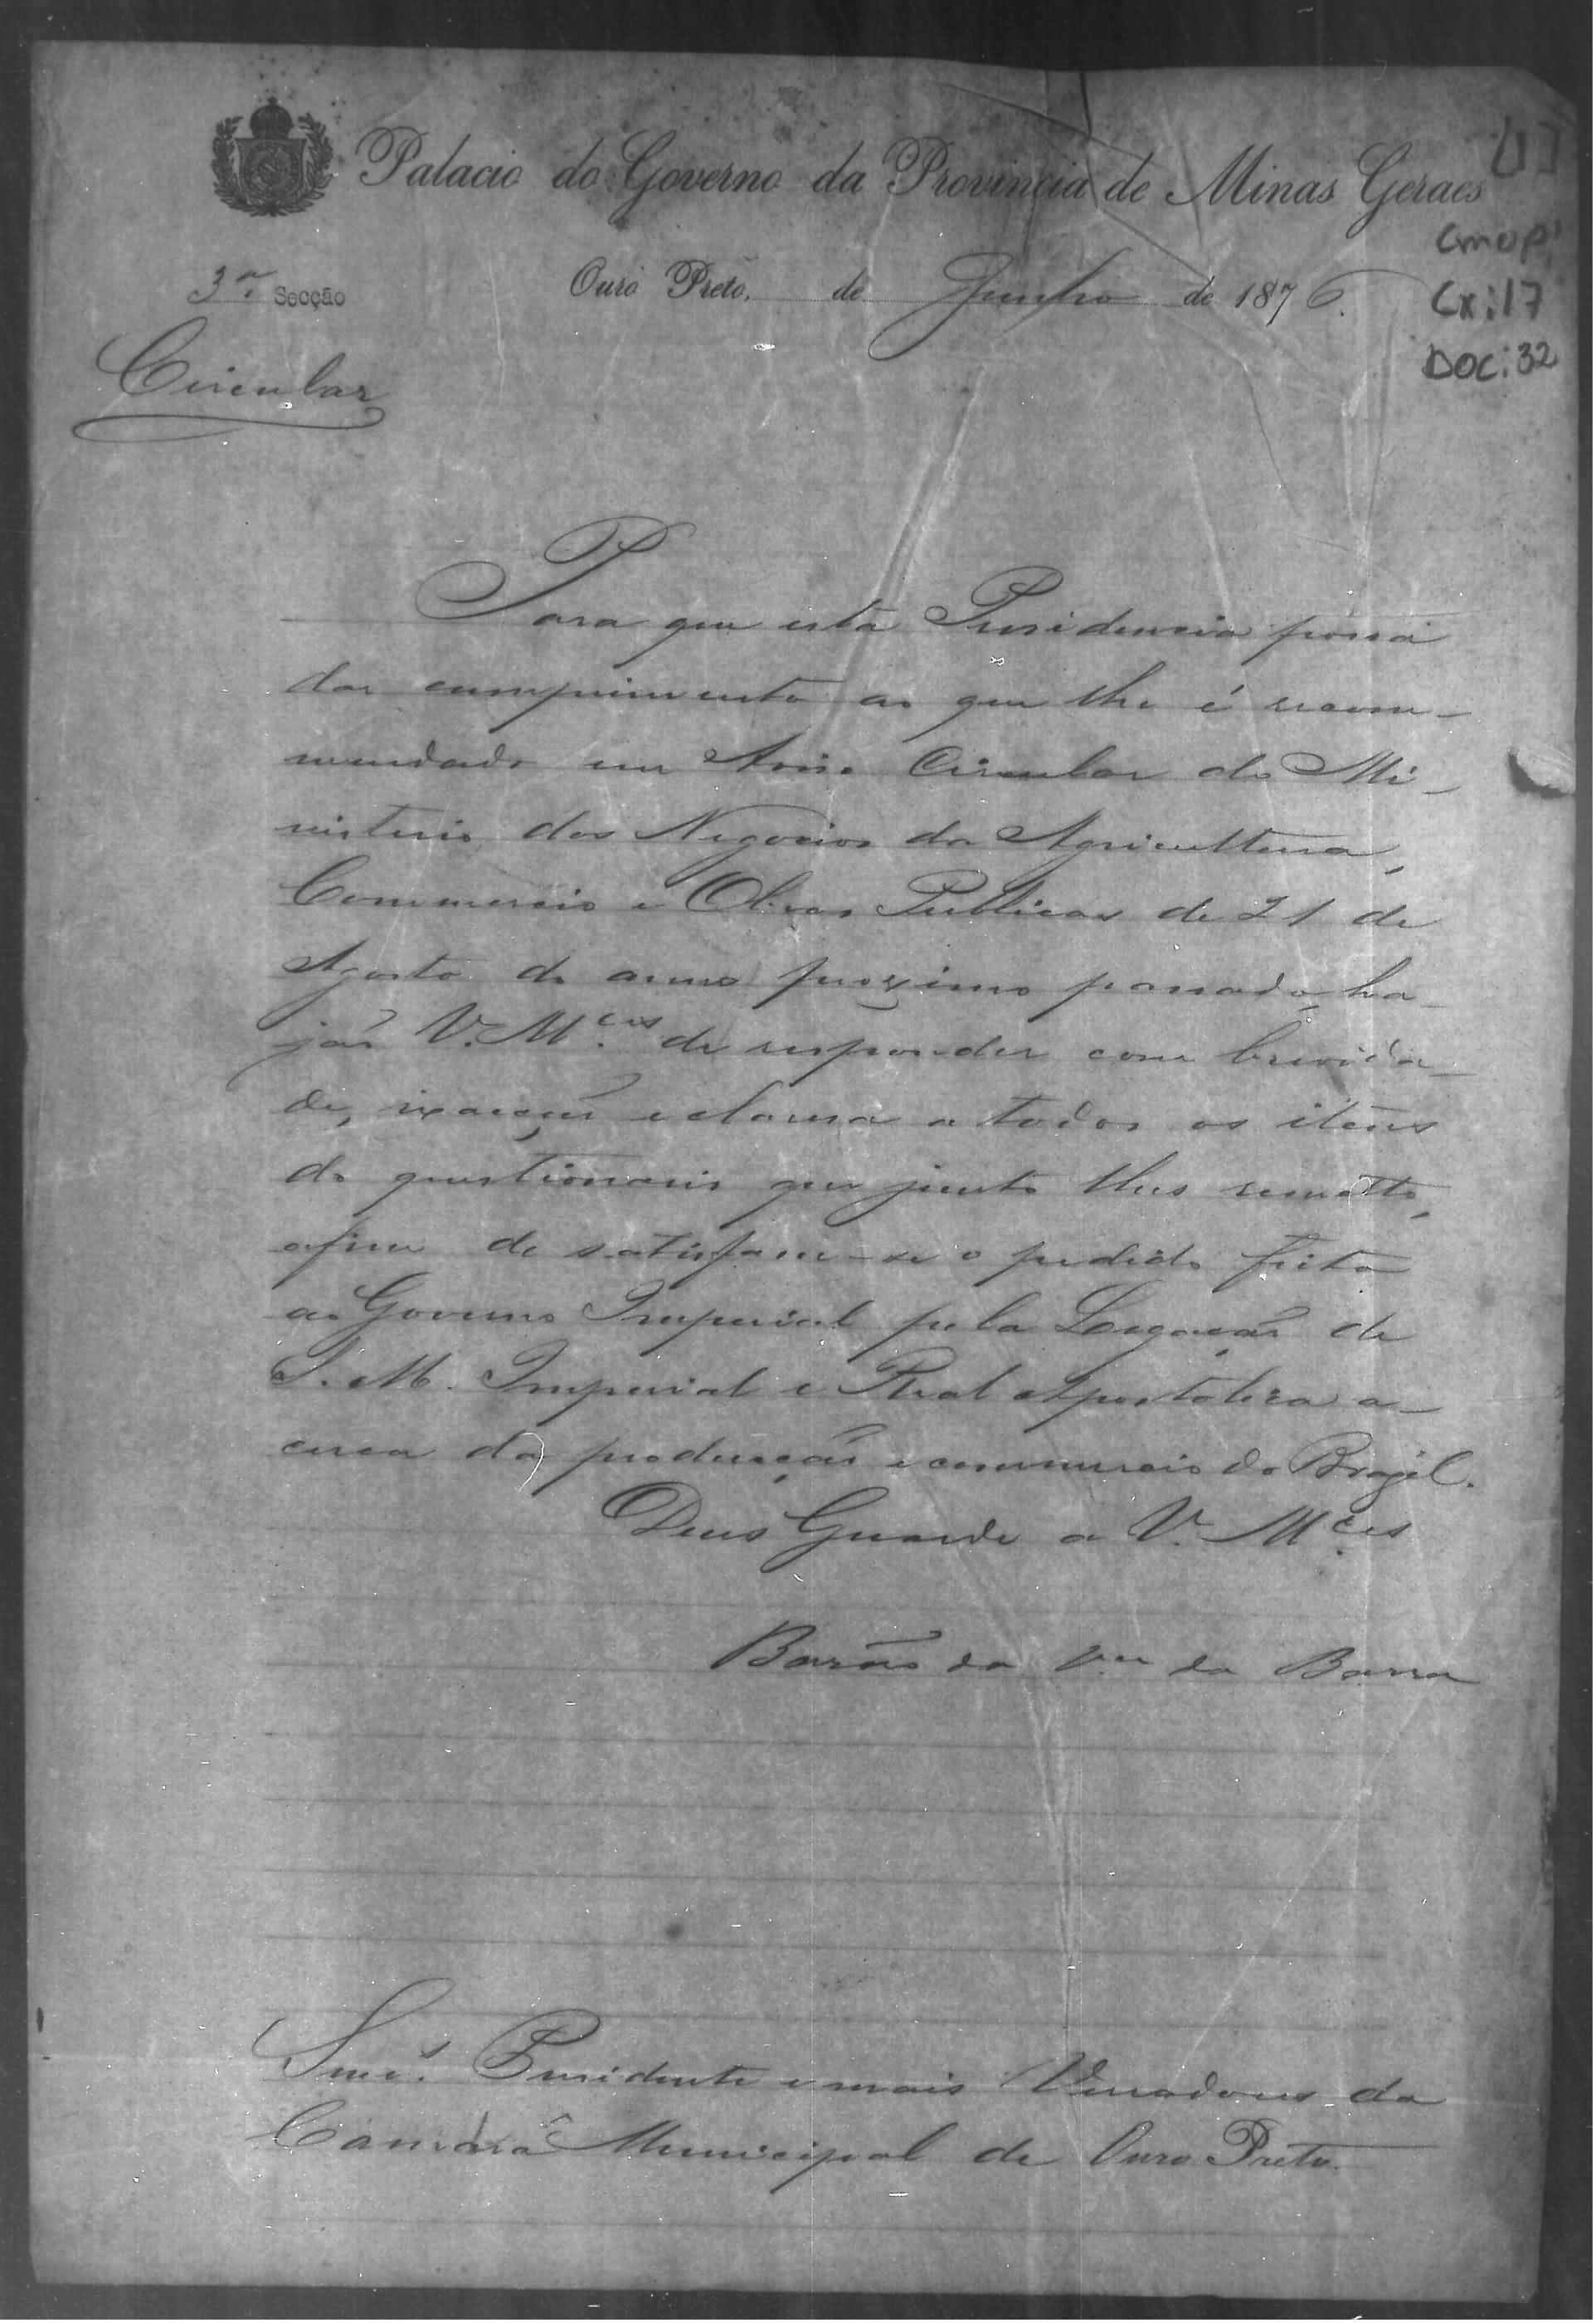 Palacio do Governo da Provincia de Minas Geraes
CMOP
Cx: 17
DOC: 32
3ª Secção
Ouro Preto, de Junho de 1876.
Circular
Para que esta Presidencia possa
dar cumprimento ao que lhe é recom-
mendado em Aviso Circular do Mi-
nisterio dos Negocios da Agricultura,
Commercio e Obras Publicas de 21 de
Agosto do anno proximo passado, ha-
jão V. M.ces de responder com brevida-
de, exacção e clareza a todos os itens
do questionario que junto lhes remetto,
afim de satisfazer-se o pedido feito
ao Governo Imperial pela Legação de
S. M. Imperial e Real Apostolica a-
cerca da producção e commercio do Brazil.
Deus Guarde a V. M.ces
Barão da V.ª da Barra
Snr.es Presidente e mais Vereadores da
Camara Municipal de Ouro Preto.